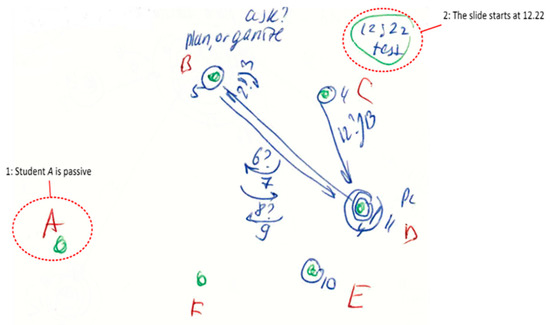 ask?
plan, organize
12:22
test
2: The slide starts at 12.22
B
5
2?
3
4
C
12?
13
1: Student A is passive
A
6?
7
8?
9
Pc
11
D
10
E
F